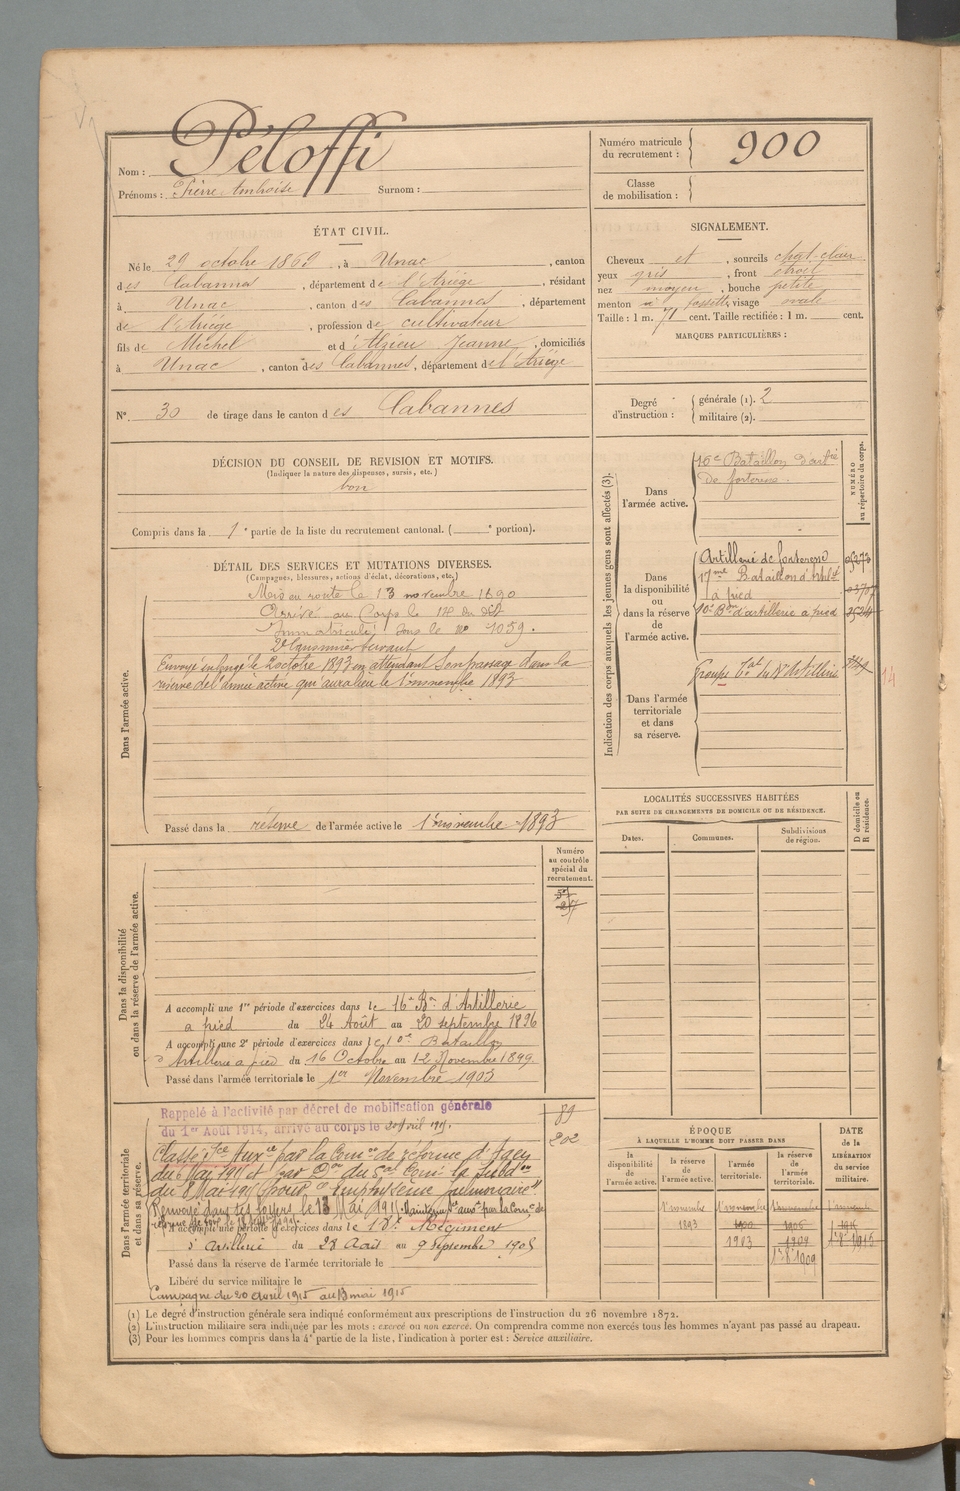 Nom : Péloffi
Prénoms : Pierre Ambroise Surnom :
Numéro matricule du recrutement : 900
Classe de mobilisation :
ÉTAT CIVIL.
Né le 29 octobre 1869, à Unac, canton
des Cabannes, département de l'Ariège, résidant
à Unac, canton des Cabannes, département
de l'Ariège, profession de cultivateur
fils de Michel et d'Alzieu Jeanne, domiciliés
à Unac, canton des Cabannes, département de l'Ariège
N° 30 de tirage dans le canton des Cabannes
SIGNALEMENT.
Cheveux et, sourcils chat-clair
yeux gris, front étroit
nez moyen, bouche petite
menton à fossette, visage ovale
Taille : 1 m. 71 cent. Taille rectifiée : 1 m. cent.
MARQUES PARTICULIÈRES :
Degré d'instruction : générale (1). 2
militaire (2).
DÉCISION DU CONSEIL DE REVISION ET MOTIFS.
(Indiquer la nature des dispenses, sursis, etc.)
bon
Compris dans la 1e partie de la liste du recrutement cantonal. ( e portion).
DÉTAIL DES SERVICES ET MUTATIONS DIVERSES.
(Campagnes, blessures, actions d'éclat, décorations, etc.)
Dans l'armée active.
Mis en route le 13 novembre 1890
Arrivé au Corps le 14 du dit
Immatriculé sous le n° 1059.
2e Canonnier servant
Envoyé en congé le 2 octobre 1893 en attendant son passage dans la
réserve de l'armée active qui aura lieu le 1er novembre 1893
Passé dans la réserve de l'armée active le 1er novembre 1893
Indication des corps auxquels les jeunes gens sont affectés (3).
NUMÉRO au répertoire du corps.
Dans l'armée active.
16e Bataillon d'artie
de forteresse.
Dans la disponibilité ou dans la réserve de l'armée active.
Artillerie de forteresse
17me Bataillon d'Artil.
à pied
10e Bon d'artillerie à pied
Dans l'armée territoriale et dans sa réserve.
Groupe
14
LOCALITÉS SUCCESSIVES HABITÉES
PAR SUITE DE CHANGEMENTS DE DOMICILE OU DE RÉSIDENCE.
Dates. Communes. Subdivisions de région. D domicile ou R résidence.
Dans la disponibilité ou dans la réserve de l'armée active.
Numéro au contrôle spécial du recrutement.
A accompli une 1re période d'exercices dans le 16e Bon d'Artillerie
à pied du 24 Août au 20 septembre 1896
A accompli une 2e période d'exercices dans le 10e Bataillon
d'Artillerie à pied du 16 Octobre au 12 Novembre 1899.
Passé dans l'armée territoriale le 1er Novembre 1903
Dans l'armée territoriale et dans sa réserve.
89
202
Rappelé à l'activité par décret de mobilisation générale
du 1er Août 1914, arrivé au corps le 20 avril 1915.
Classé Sce Auxre par la Comon de réforme d'Agen
du 6 Mai 1915 et
du 8 Mai 1915 pour "emphysème pulmonaire".
Renvoyé dans ses foyers le 13 Mai 1915. Maintenu Sce auxre par la Comon de
A accompli une période d'exercices dans le 18e Régiment
d'Artillerie du 28 Août au 9 Septembre 1905
Passé dans la réserve de l'armée territoriale le
Libéré du service militaire le
Campagne du 20 avril 1915 au 13 mai 1915
ÉPOQUE
À LAQUELLE L'HOMME DOIT PASSER DANS
la disponibilité de l'armée active. la réserve de l'armée active. l'armée territoriale. la réserve de l'armée territoriale.
DATE de la LIBÉRATION du service militaire.
1er novembre 1er novembre 1er novembre 1er novembre
1893 1900 1906 1915
1903 1909
1er 8bre 1909
(1) Le degré d'instruction générale sera indiqué conformément aux prescriptions de l'instruction du 26 novembre 1872.
(2) L'instruction militaire sera indiquée par les mots : exercé ou non exercé. On comprendra comme non exercés tous les hommes n'ayant pas passé au drapeau.
(3) Pour les hommes compris dans la 4e partie de la liste, l'indication à porter est : Service auxiliaire.